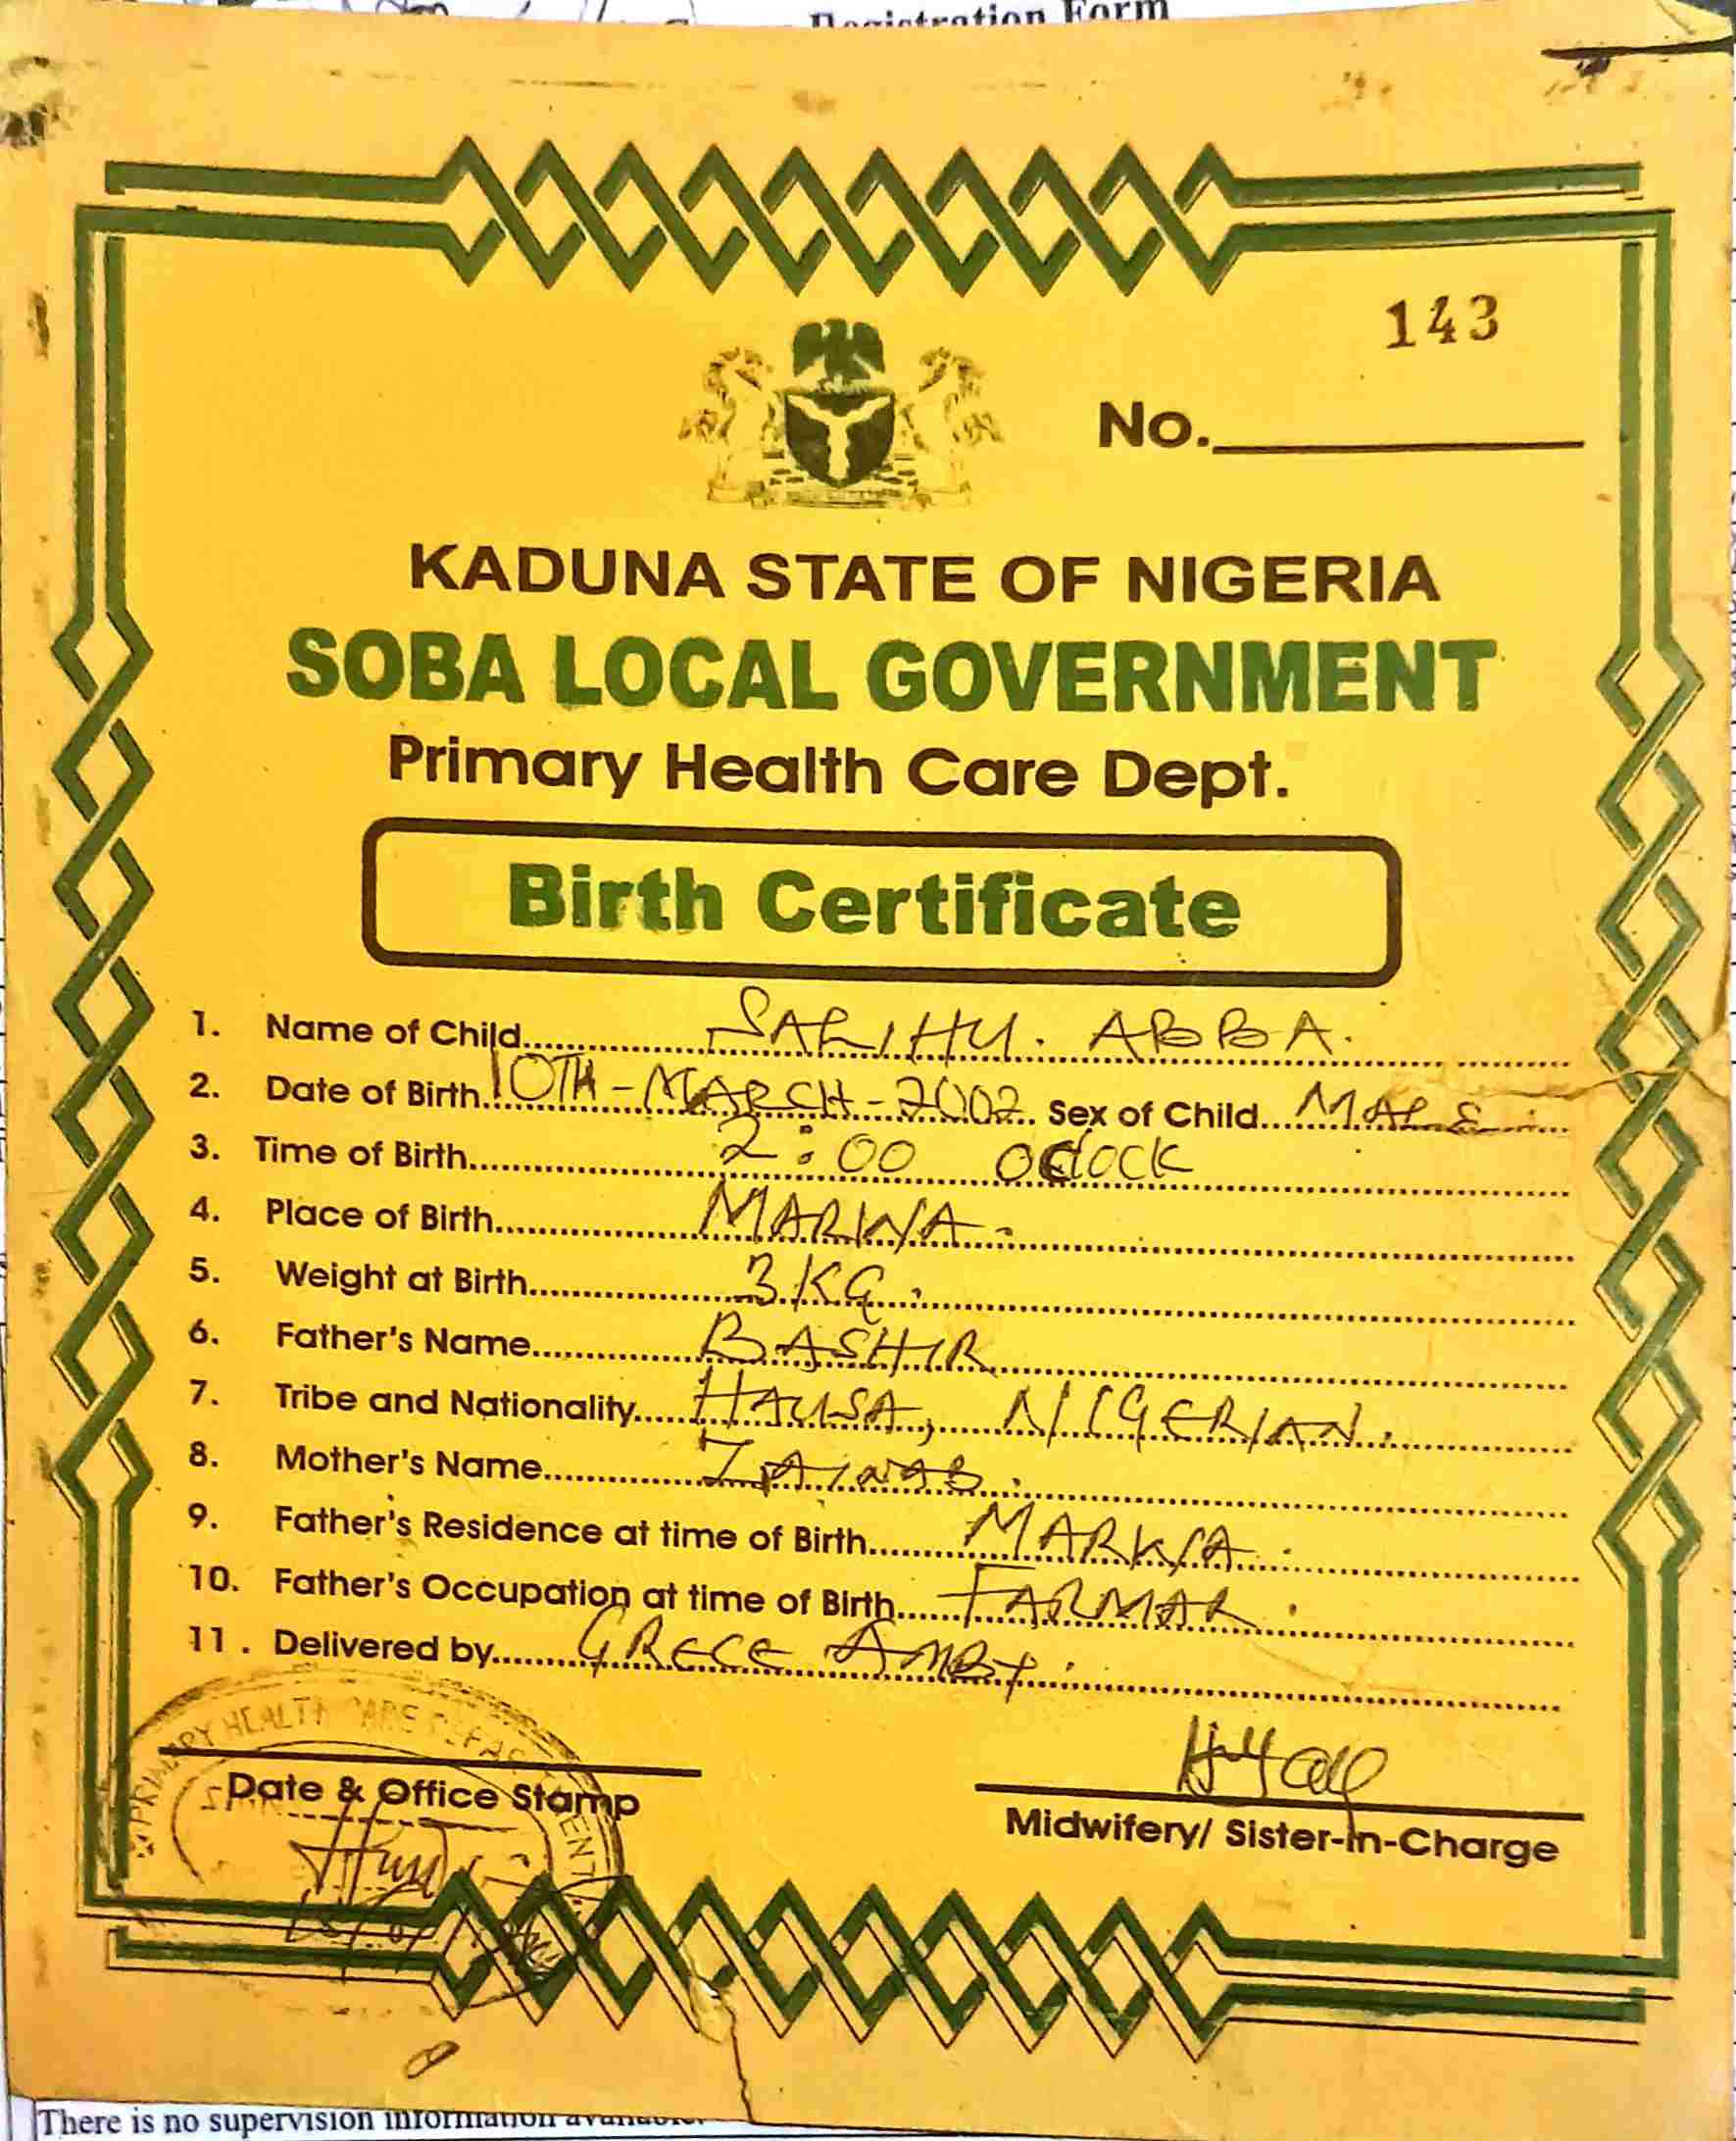 Registration Form
143
No.
KADUNA STATE OF NIGERIA
SOBA LOCAL GOVERNMENT
Primary Health Care Dept.
Birth Certificate
1. Name of Child SALIHU. ABBA.
2. Date of Birth 10TH-MARCH-2002 Sex of Child MALE
3. Time of Birth 2:00 oclock
4. Place of Birth MARWA.
5. Weight at Birth 3KG.
6. Father's Name BASHIR
7. Tribe and Nationality HAUSA, NIGERIAN.
8. Mother's Name ZAINAB.
9. Father's Residence at time of Birth MARWA.
10. Father's Occupation at time of Birth FARMAR.
11. Delivered by GRECE
PRIMARY HEALTH CARE DEPARTMENT
Date & Office Stamp
Midwifery/ Sister-in-Charge
There is no supervision information available.